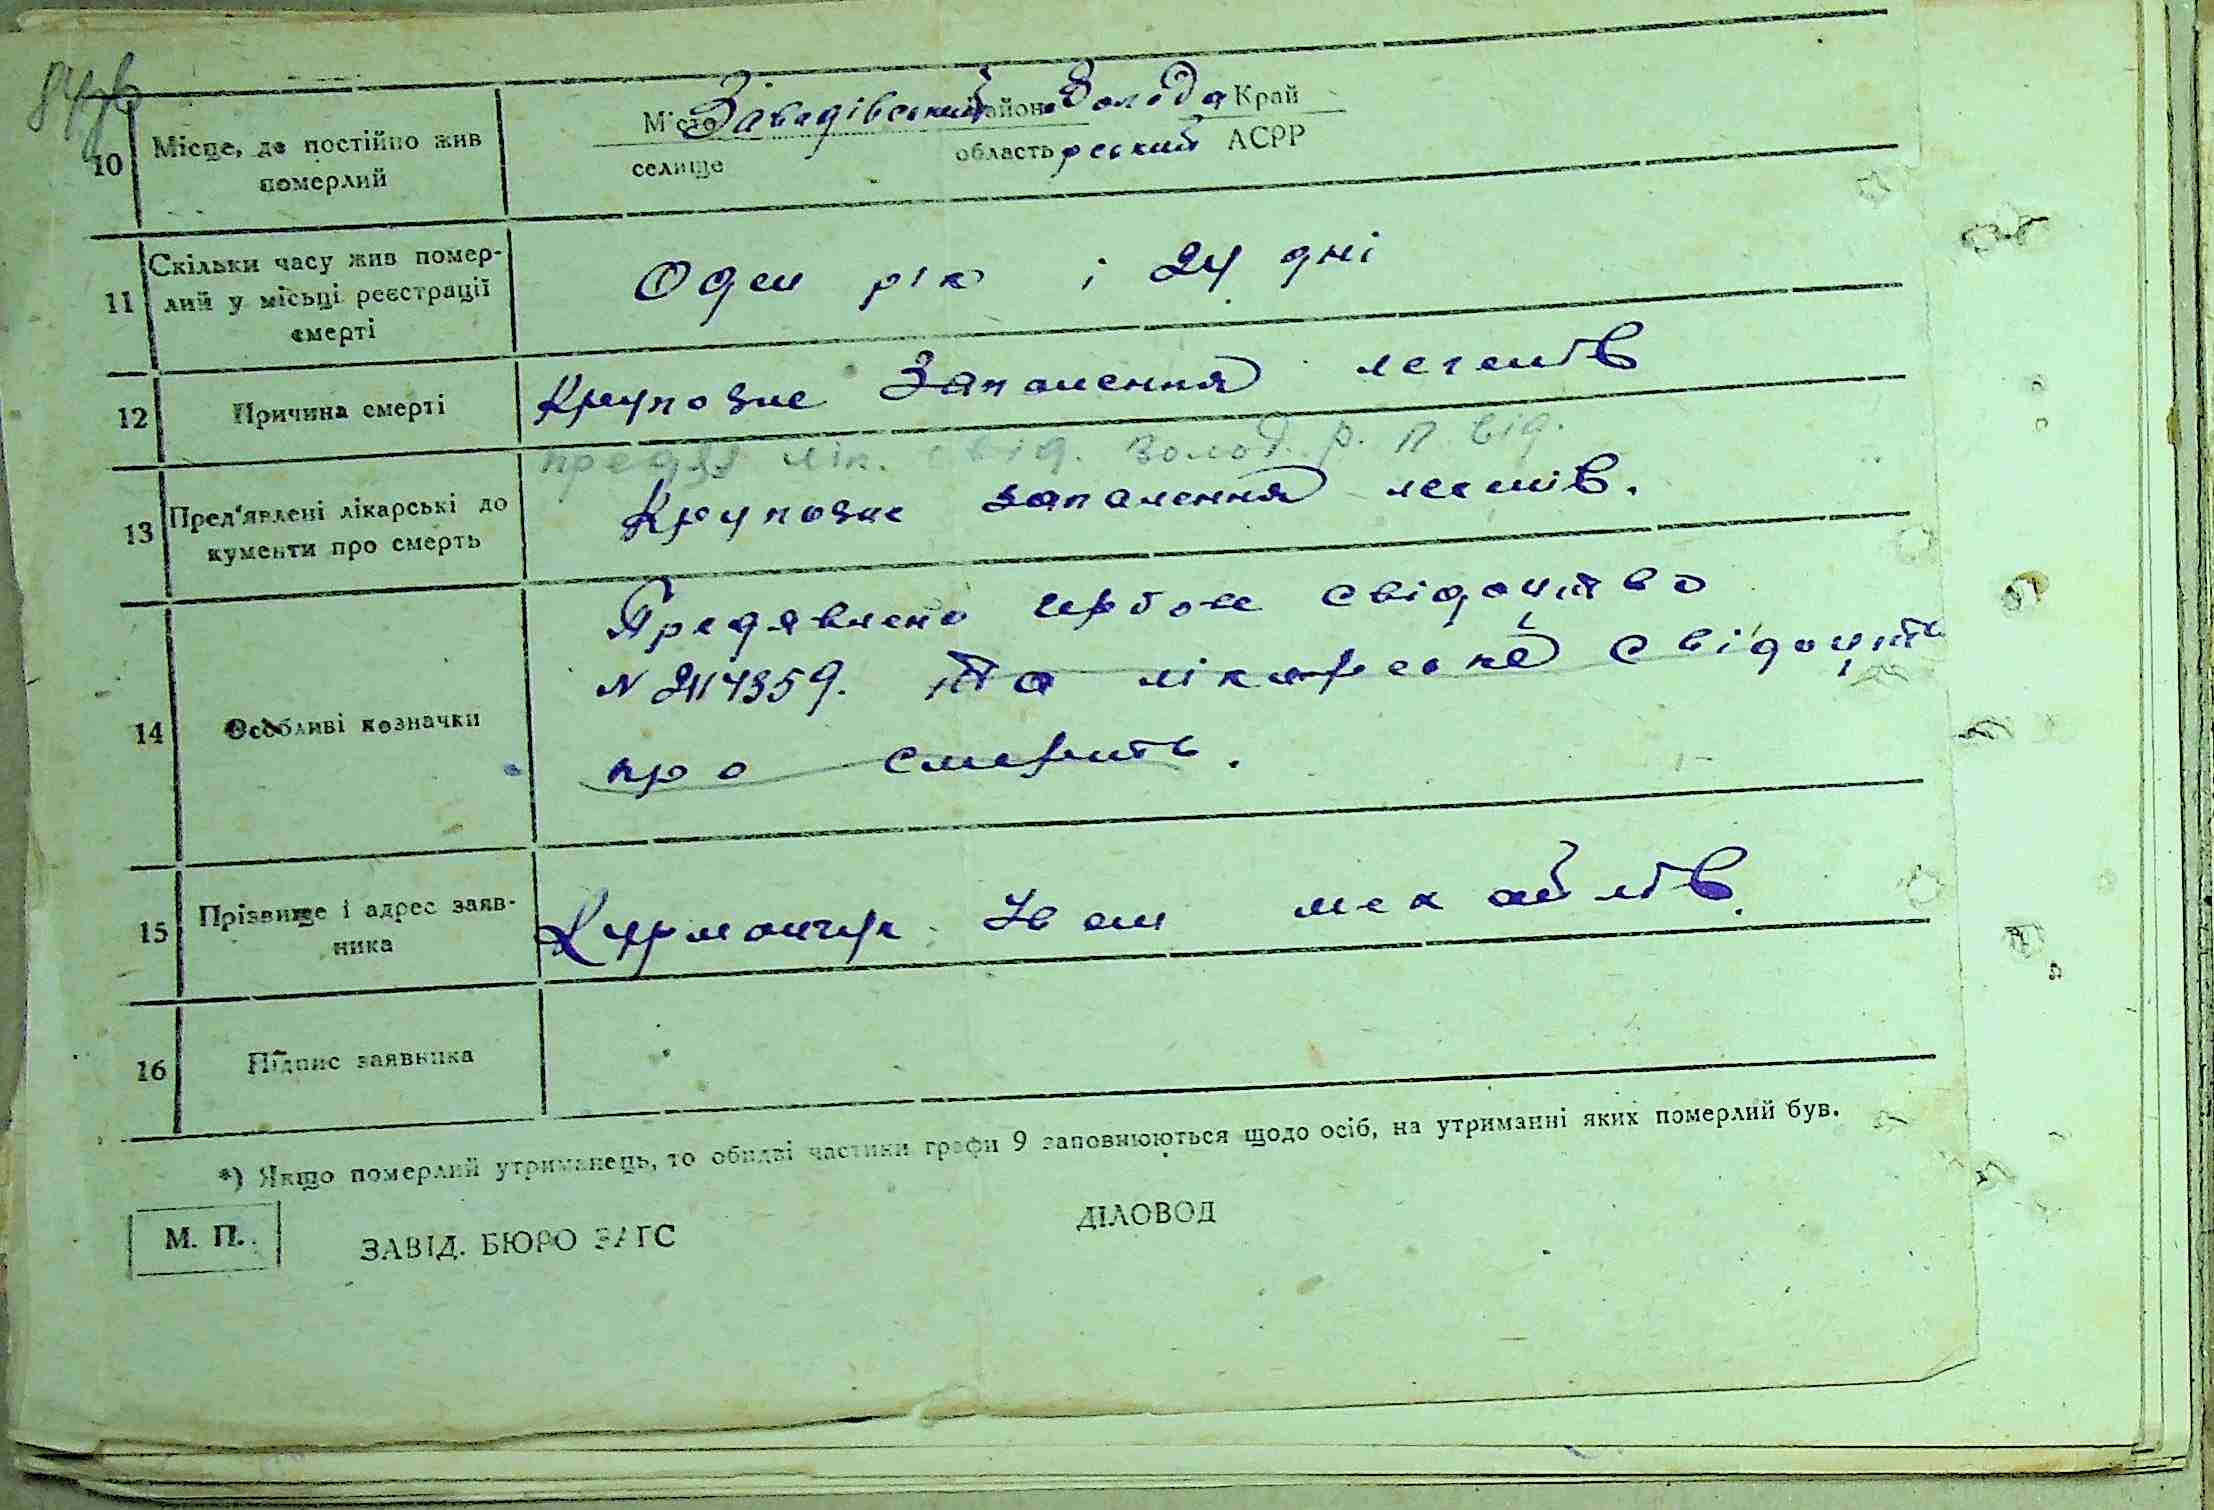 10 Місце, де постійно жив померлий
Місто Завадівський район Волода Край
селище область рський АСРР
11 Скільки часу жив помер-
лий у місьці реєстрації
смерті
Оден рік і 24 дні
12 Причина смерті
Крупозне Запалення легенів
13 Пред'явлені лікарські до
кументи про смерть
предяв лік. свід. Волод. р. П від.
Крупозне запалення легенів.
14 Особливі позначки
Предявлено гербове свідоцтво
N 2114359. Та лікарське свідоцтв
про смерть.
15 Прізвище і адрес заяв-
ника
Курманчук Іван
16 Підпис заявника
*) Якщо померлий утриманець, то обидві частини графи 9 заповнюються щодо осіб, на утриманні яких померлий був.
М. П.
ЗАВІД. БЮРО ЗАГС ДІЛОВОД